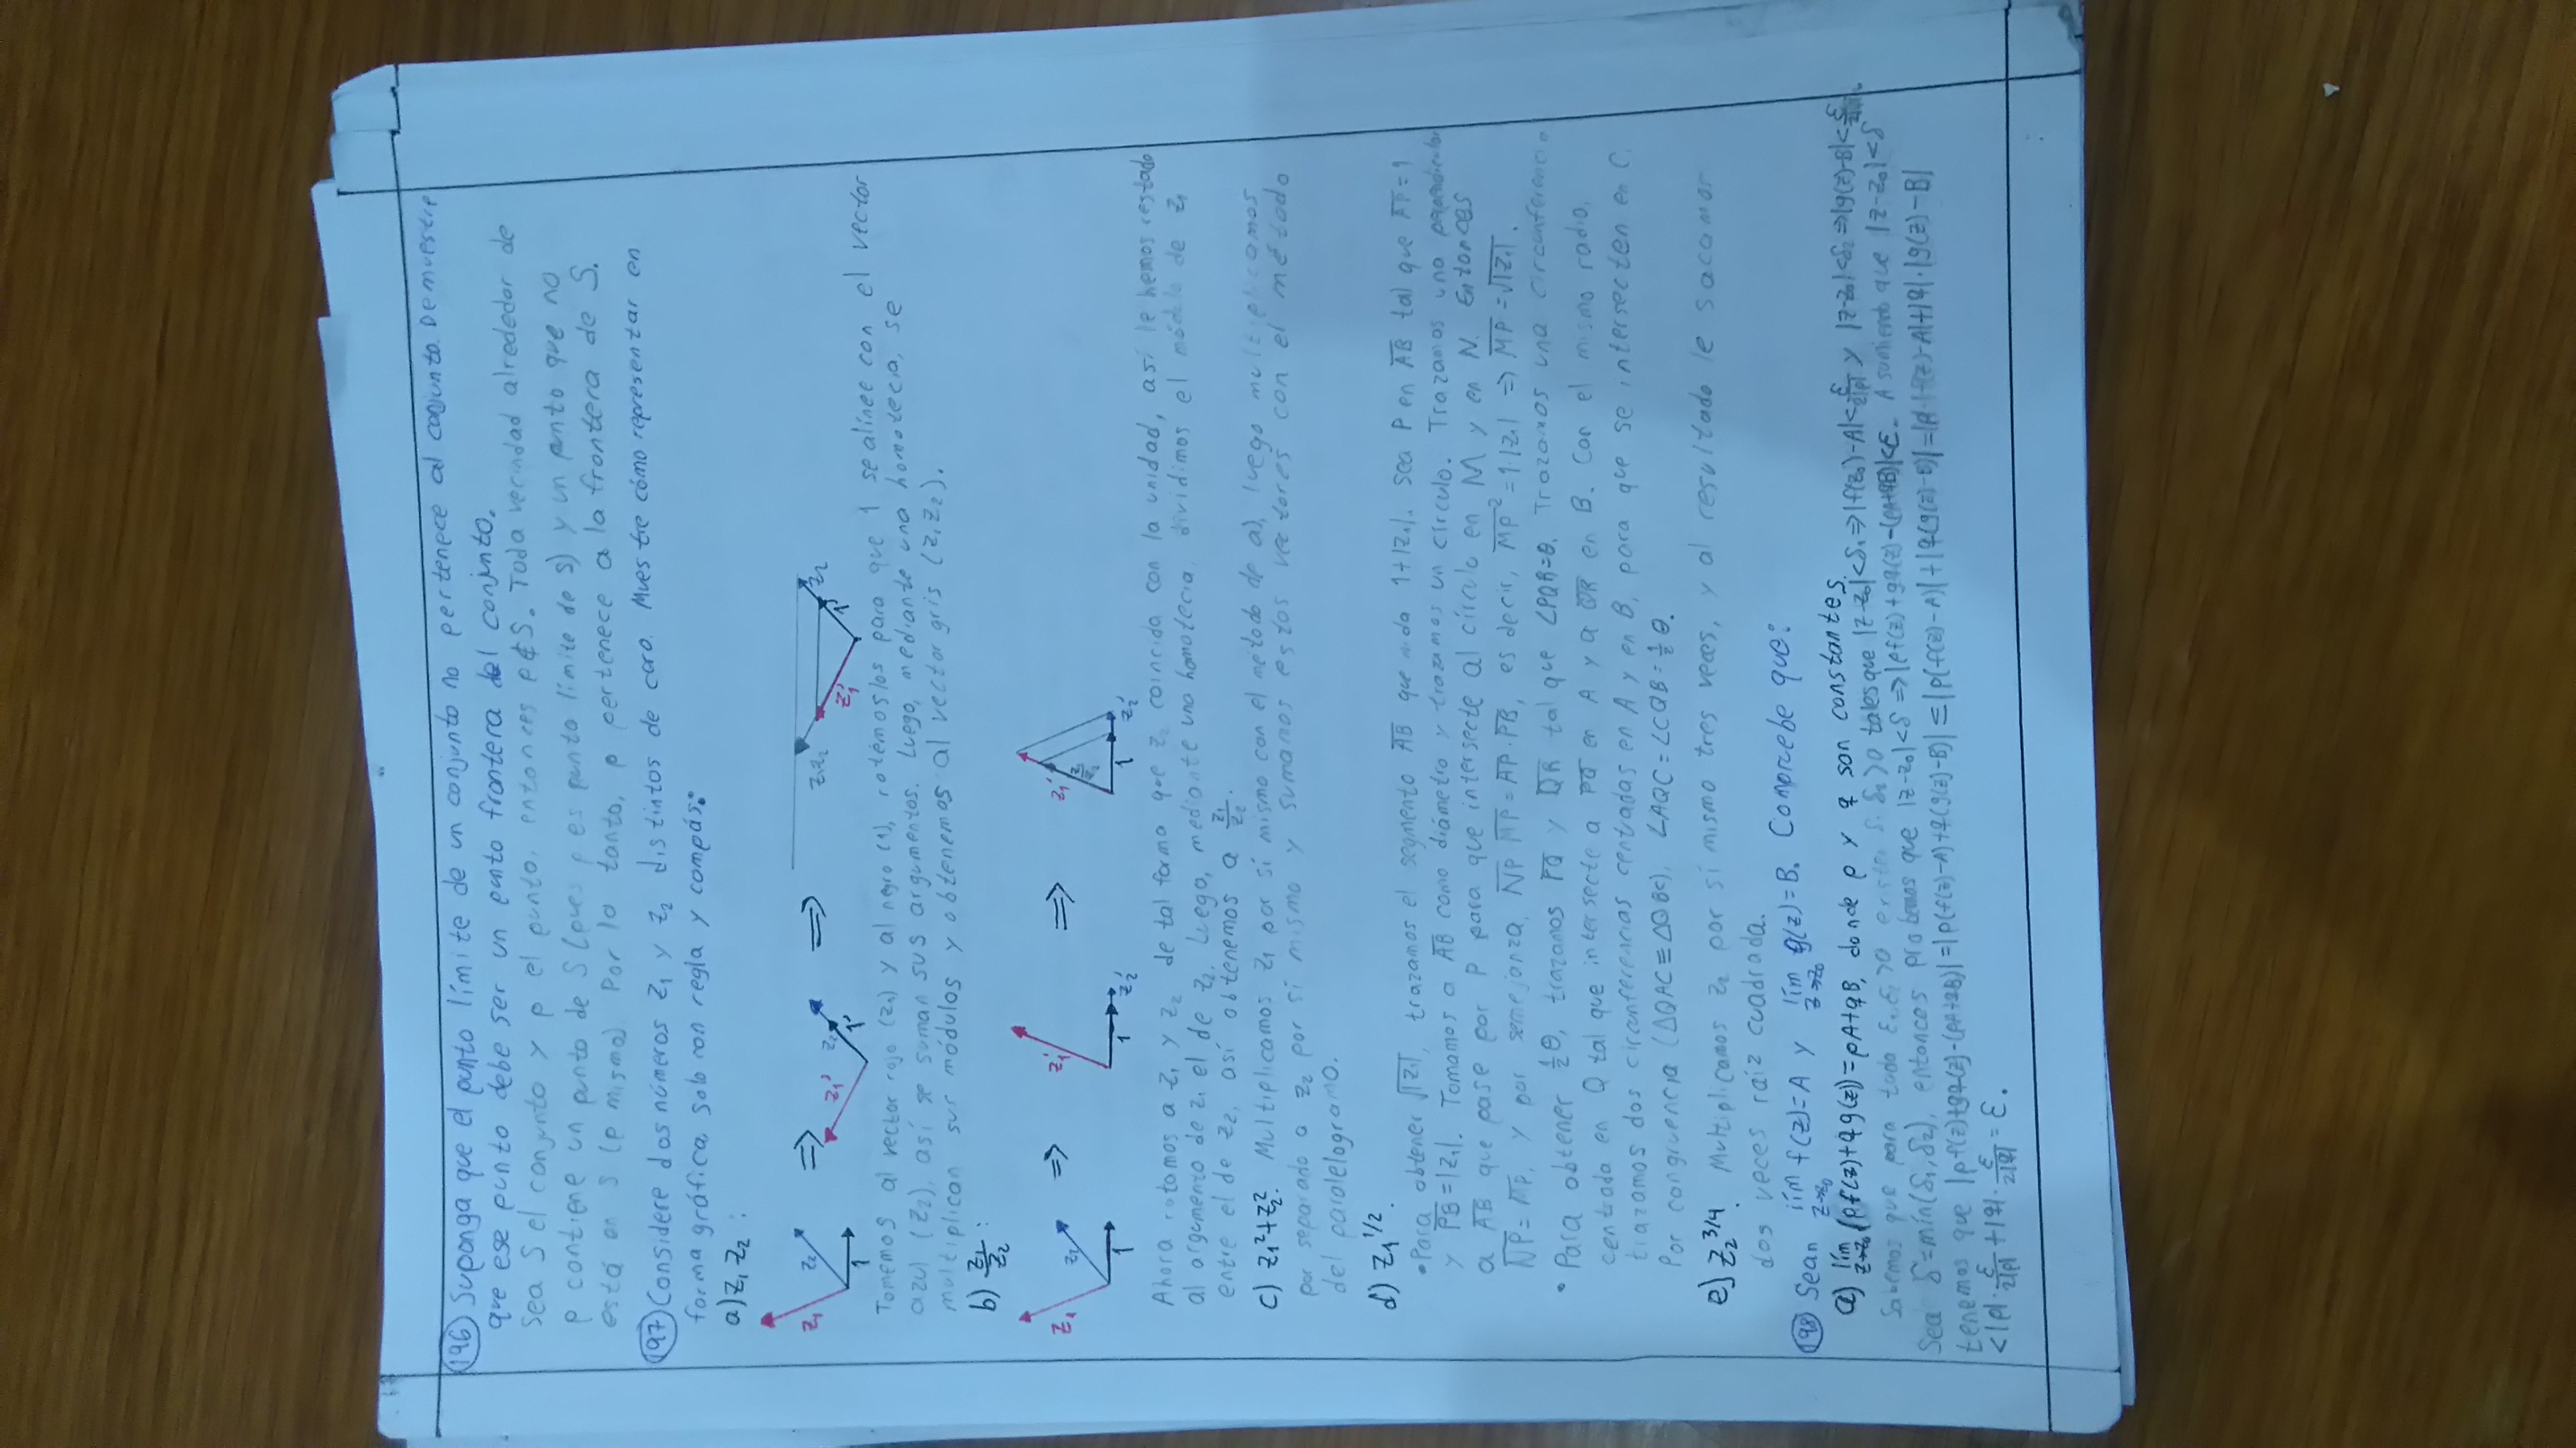 196) Suponga que el punto límite de un conjunto no pertenece al conjunto. Demuestre
que ese punto debe ser un punto frontera del conjunto.
Sea S el conjunto y p el punto, entonces p∉S. Toda vecindad alrededor de
p contiene un punto de S (pues p es punto límite de S) y un punto que no
está en S (p mismo). Por lo tanto, p pertenece a la frontera de S.
197) Considere dos números z₁ y z₂ distintos de cero. Muestre cómo representar en
forma gráfica solo con regla y compás:
a) z₁ z₂ :
z₁ z₂ 1 ⇒ z₁' z₂ 1' ⇒ z₁z₂ z₁' 1' z₂
Tomemos al vector rojo (z₁) y al negro (1), rotémoslos para que 1 se alinee con el vector
azul (z₂), así se suman sus argumentos. Luego, mediante una homotecia, se
multiplican sus módulos y obtenemos al vector gris (z₁z₂).
b) z₁/z₂ :
z₁ z₂ 1 ⇒ z₁' 1 z₂' ⇒ z₁' z₁/z₂ 1 z₂'
Ahora rotamos a z₁ y z₂ de tal forma que z₂ coincida con la unidad, así le hemos restado
al argumento de z₁ el de z₂. Luego, mediante una homotecia, dividimos el módulo de z₁
entre el de z₂, así obtenemos a z₁/z₂.
c) z₁²+z₂². Multiplicamos z₁ por sí mismo con el método de a), luego multiplicamos
por separado a z₂ por sí mismo y sumamos estos vectores con el método
del paralelogramo.
d) z₁^1/2.
•Para obtener √|z₁|, trazamos el segmento AB que mida 1+|z₁|. Sea P en AB tal que AP=1
y PB=|z₁|. Tomamos a AB como diámetro y trazamos un círculo. Trazamos una perpendicular
a AB que pase por P para que intersecte al círculo en M y en N. Entonces
NP=MP, y por semejanza, NP·MP=AP·PB, es decir, MP²=1·|z₁| ⇒ MP=√|z₁|.
• Para obtener ½θ, trazamos PQ y QR tal que ∠PQR=θ. Trazamos una circunferencia
centrada en Q tal que intersecte a PQ en A y a QR en B. Con el mismo radio,
trazamos dos circunferencias centradas en A y en B, para que se intersecten en C.
Por congruencia (△QAC≡△QBC), ∠AQC=∠CQB=½θ.
e) z₂^3/4. Multiplicamos z₂ por sí mismo tres veces, y al resultado le sacamos
dos veces raíz cuadrada.
198) Sean lím z→z₀ f(z)=A y lím z→z₀ g(z)=B. Compruebe que:
a) lím z→z₀ (pf(z)+qg(z))=pA+qB, donde p y q son constantes.
Sabemos que para todo ε₁,ε₂>0 existen δ₁,δ₂>0 tales que |z-z₀|<δ₁⇒|f(z₀)-A|<ε/2|p| y |z-z₀|<δ₂⇒|g(z)-B|<ε/2|q|.
Sea δ=mín(δ₁,δ₂), entonces probemos que |z-z₀|<δ ⇒|pf(z)+qg(z)-(pA+qB)|<ε. Asumiendo que |z-z₀|<δ
tenemos que |pf(z)+qg(z)-(pA+qB)|=|p(f(z)-A)+q(g(z)-B)|≤|p(f(z)-A)|+|q(g(z)-B)|=|p|·|f(z)-A|+|q|·|g(z)-B|
<|p|·ε/2|p|+|q|·ε/2|q|=ε.